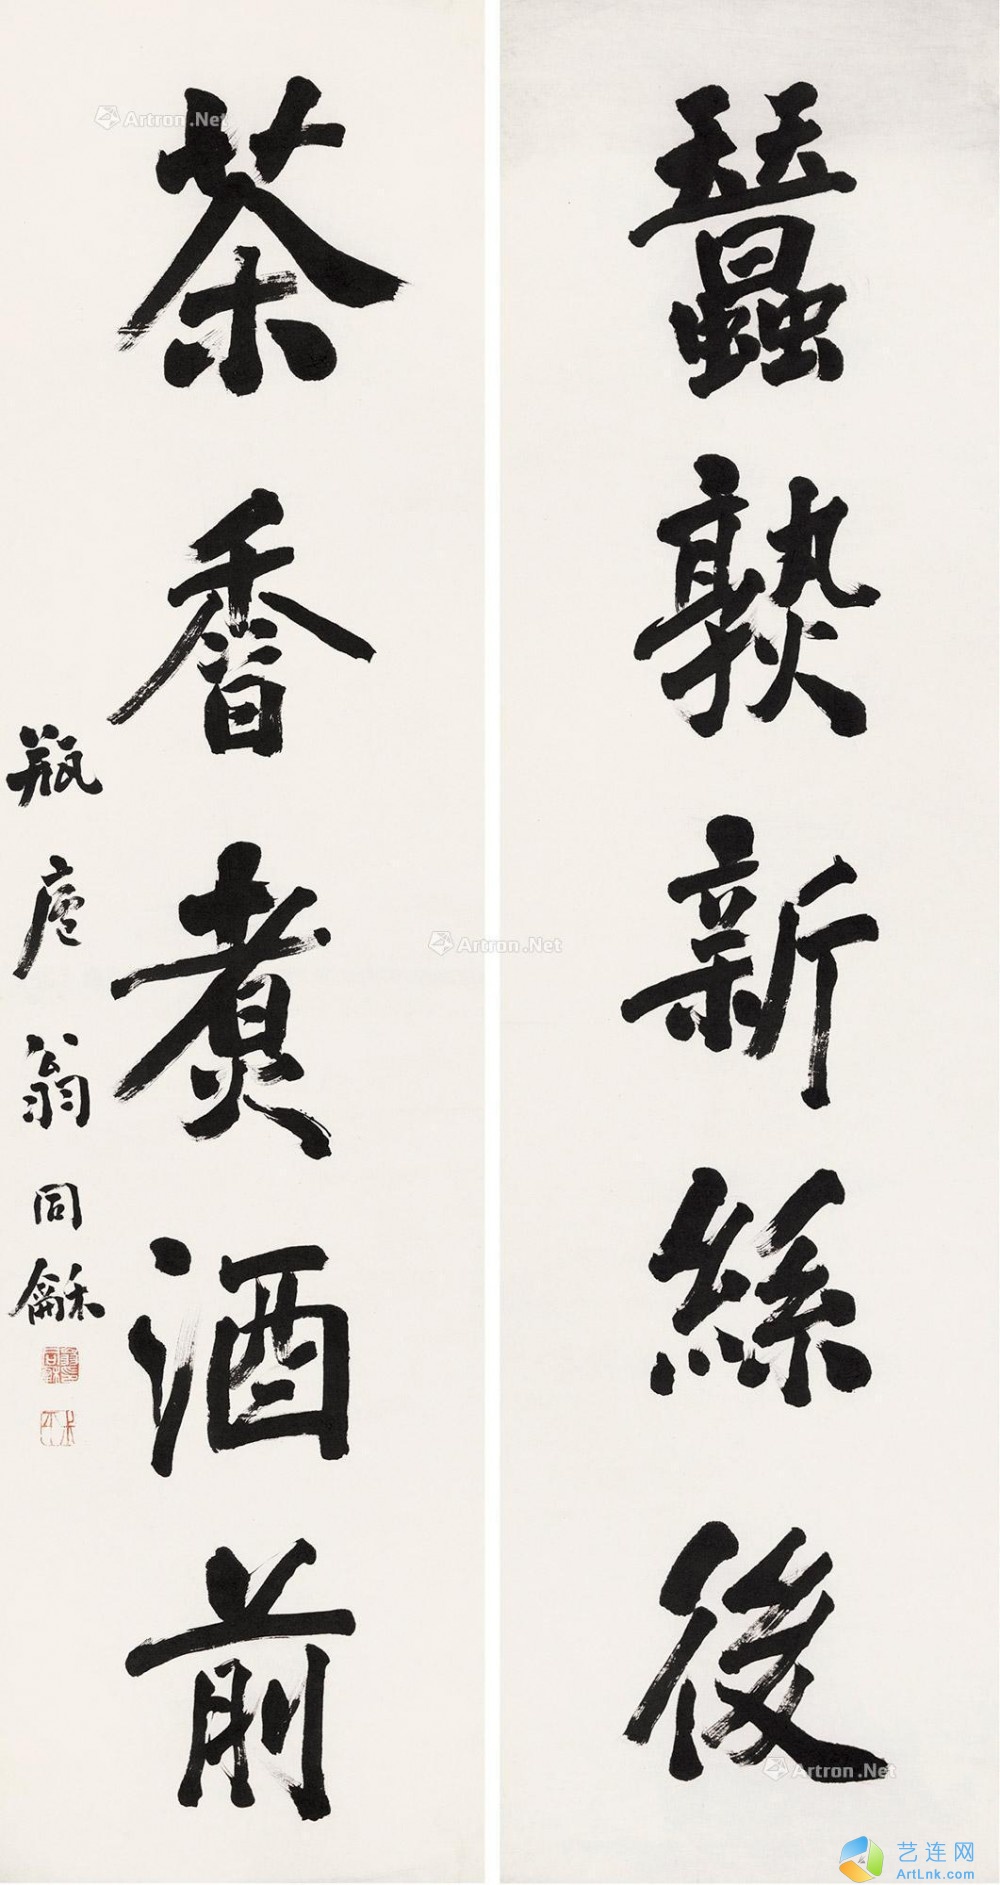 蠶熟新絲後
茶香煮酒前
瓶廬翁同龢
Artron.Net
Artron.Net
Artron.Net
艺连网
ArtLnk.com